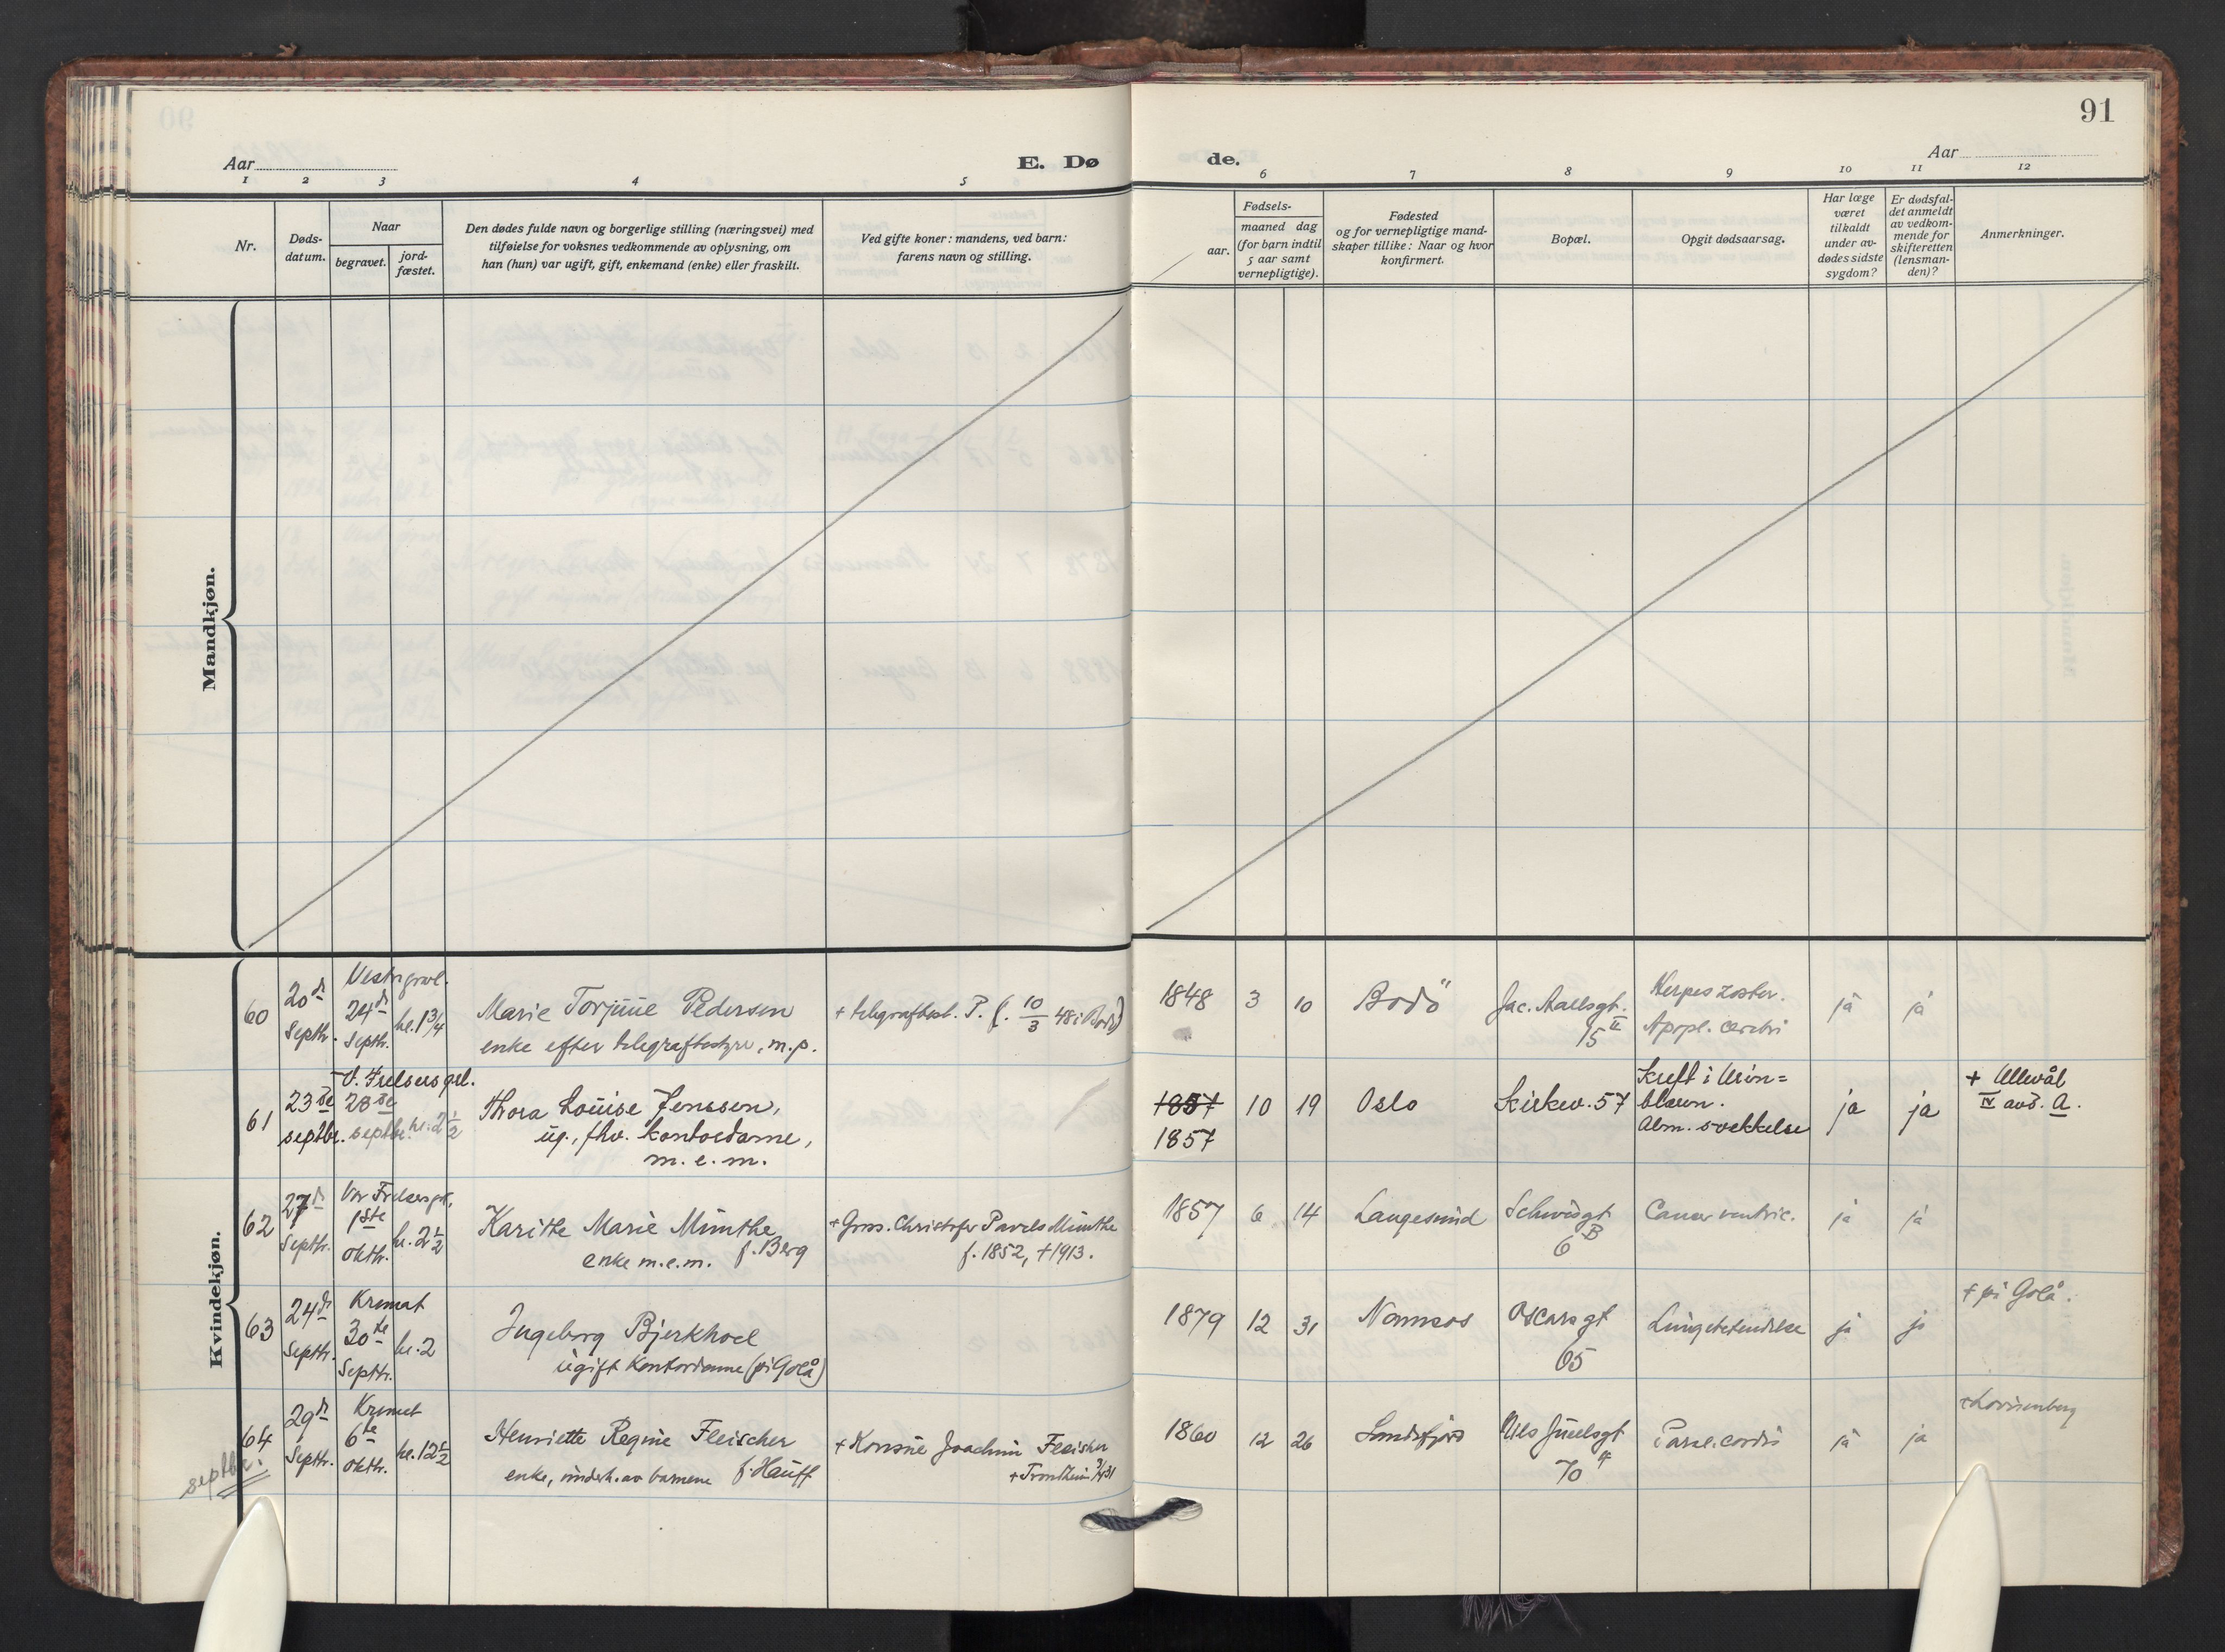 91
Aar
E. Dø
de.
Aar
1 2 3 4 5 6 7 8 9 10 11 12
Nr.
Døds-
datum.
Naar
begravet.
jord-
fæstet.
Den dødes fulde navn og borgerlige stilling (næringsvei) med
tilføielse for voksnes vedkommende av oplysning, om
han (hun) var ugift, gift, enkemand (enke) eller fraskilt.
Ved gifte koner: mandens, ved barn:
farens navn og stilling.
Fødsels-
aar.
maaned dag
(for barn indtil
5 aar samt
vernepligtige).
Fødested
og for vernepligtige mand-
skaper tillike: Naar og hvor
konfirmert.
Bopæl.
Opgit dødsaarsag.
Har læge
været
tilkaldt
under av-
dødes sidste
sygdom?
Er dødsfal-
det anmeldt
av vedkom-
mende for
skifteretten
(lensman-
den)?
Anmerkninger.
Mandkjøn.
Kvindekjøn.
60
20de
Septbr.
Vestr. gravl.
24de
Septbr.
kl. 1 3/4
Marie Torjine Pedersen
enke efter telegrafbestyrer, m.p.
+ telegrafbest. P. (. 10/3 48 i Bodö)
1848 3 10
Bodö
Jac. Aallsgt.
15 II
Herpes zoster.
Apopl. cerebri
ja ja
61
23de
septbr.
V. Frelsers grl.
28de
septbr.
kl. 2 1/2
Thora Louise Jenssen,
ug., fhv. kontordame,
m. e. m.
1857
1857
10 19
Oslo
Kirkev. 57
Kreft i Urin=
blæren.
Alm. svekkelse
ja ja
+ Ullevål
IV avd. A.
62
27de
Septbr.
Vor Frelsers grl.
1ste
Oktbr.
kl. 2 1/2
Karithe Marie Münthe
enke m.e.m. f. Berg
+ Gross. Christofer Pavels Münthe
f. 1852, +1913.
1857 6 14
Langesund
Schwensgt
6 B
Cancer ventric.
ja ja
63
24de
Septbr.
Kremat
30te
Septbr.
kl. 2
Ingeborg Bjerkhoel
ugift Kontordame (på Golå)
1879 12 31
Namsos
Oscarsgt
65
Lungebetendelse
ja ja
+ på Golå.
64
29de
Septbr.
septbr.
Kremat
6te
Oktbr.
kl. 12 1/2
Henriette Regine Fleischer
enke, underh. av barnene f. Hauff
+ Konsul Joachim Fleischer
+ Trondheim
1860 12 26
Sandefjord
Nils Juelsgt
70
Paral. cordis
ja ja
+ Lovisenberg